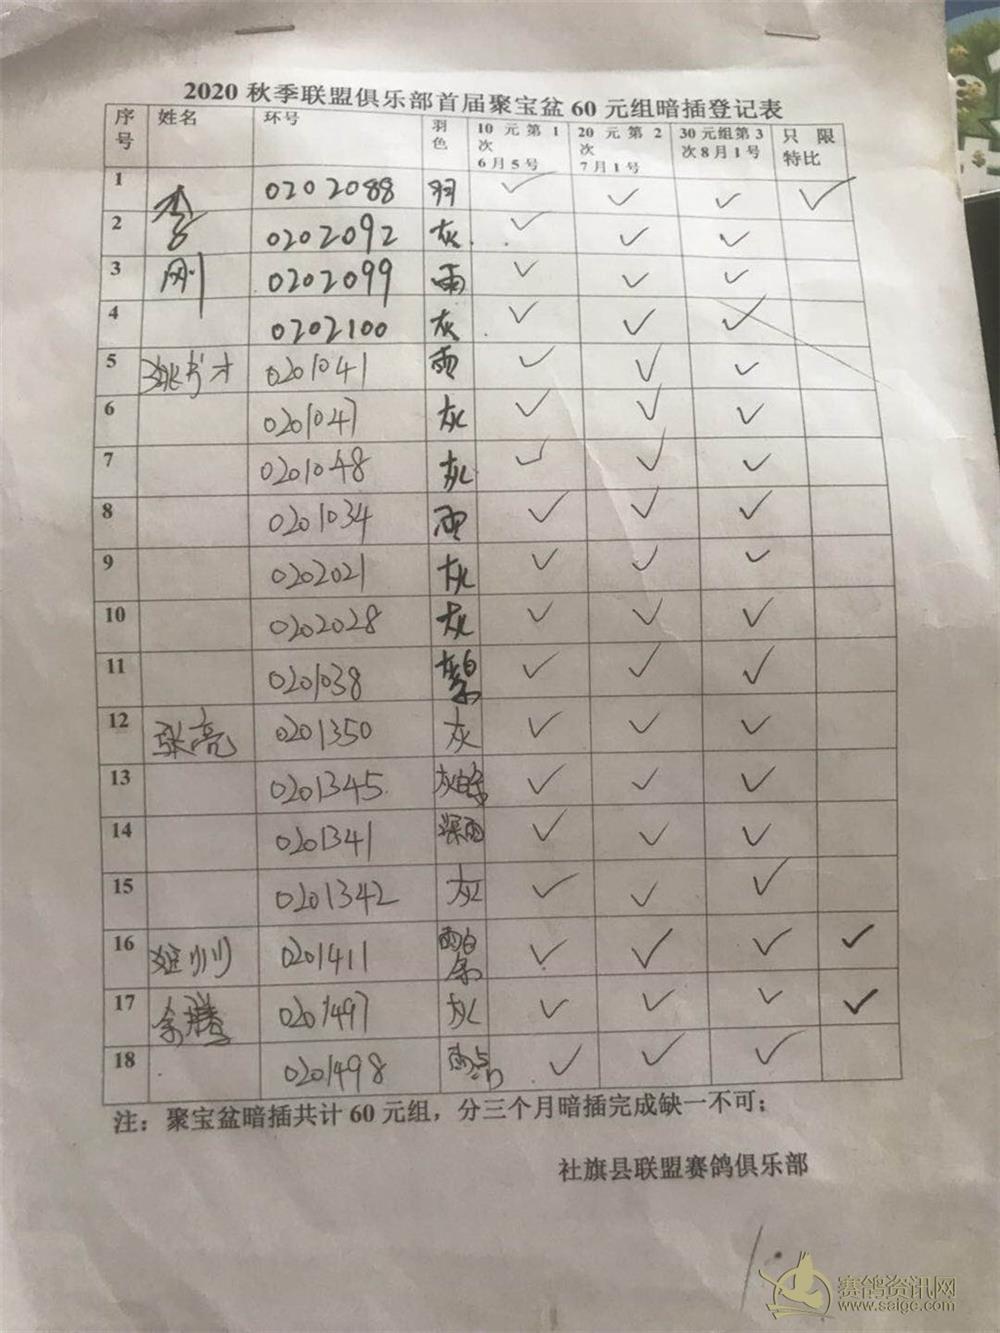 2020 秋季联盟俱乐部首届聚宝盆 60 元组暗插登记表
序号 姓名 环号 羽色 10 元第 1 次 6 月 5 号 20 元第 2 次 7 月 1 号 30 元组第 3 次 8 月 1 号 只限特比
1 李 0202088 羽 ✓ ✓ ✓ ✓
2 0202092 灰 ✓ ✓ ✓
3 刚 0202099 雨 ✓ ✓ ✓
4 0202100 灰 ✓ ✓ ✓
5 姚书才 0201041 雨 ✓ ✓ ✓
6 0201047 灰 ✓ ✓ ✓
7 0201048 灰 ✓ ✓ ✓
8 0201034 雨 ✓ ✓ ✓
9 0202021 灰 ✓ ✓ ✓
10 0202028 灰 ✓ ✓ ✓
11 0201038 灰白条 ✓ ✓ ✓
12 张亮 0201350 灰 ✓ ✓ ✓
13 0201345 灰白条 ✓ ✓ ✓
14 0201341 深雨 ✓ ✓ ✓
15 0201342 灰 ✓ ✓ ✓
16 0201411 雨白条 ✓ ✓ ✓ ✓
17 余腾 0201497 灰 ✓ ✓ ✓ ✓
18 0201498 雨点 ✓ ✓ ✓
注：聚宝盆暗插共计 60 元组，分三个月暗插完成缺一不可；
社旗县联盟赛鸽俱乐部
赛鸽资讯网
www.saigc.com